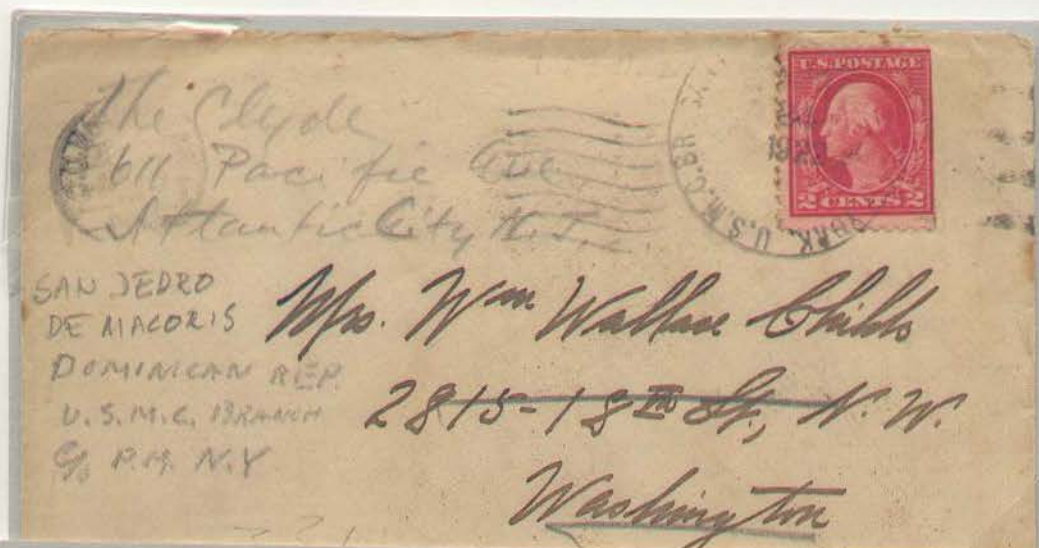 The Clyde
611 Pacific Ave
Atlantic City N.J.
U.S. POSTAGE
2 CENTS 2
U.S.M.C. BR
SAN JEDRO
DE MACORIS
DOMINICAN REP.
U.S.M.C. BRANCH
C/o P.M. N.Y
Mrs. Wm Wallace Childs
2815-18th St., N.W.
Washington